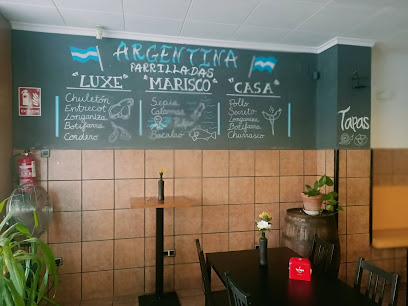 ARGENTINA
PARRILLADAS
"LUXE" "MARISCO" "CASA"
Chuletón
Entrecot
Longaniza
Botifarra
Cordero
Sepia
Calamar
Bacalao
Pollo
Secreto
Longaniza
Botifarra
Churrasco
Tapas